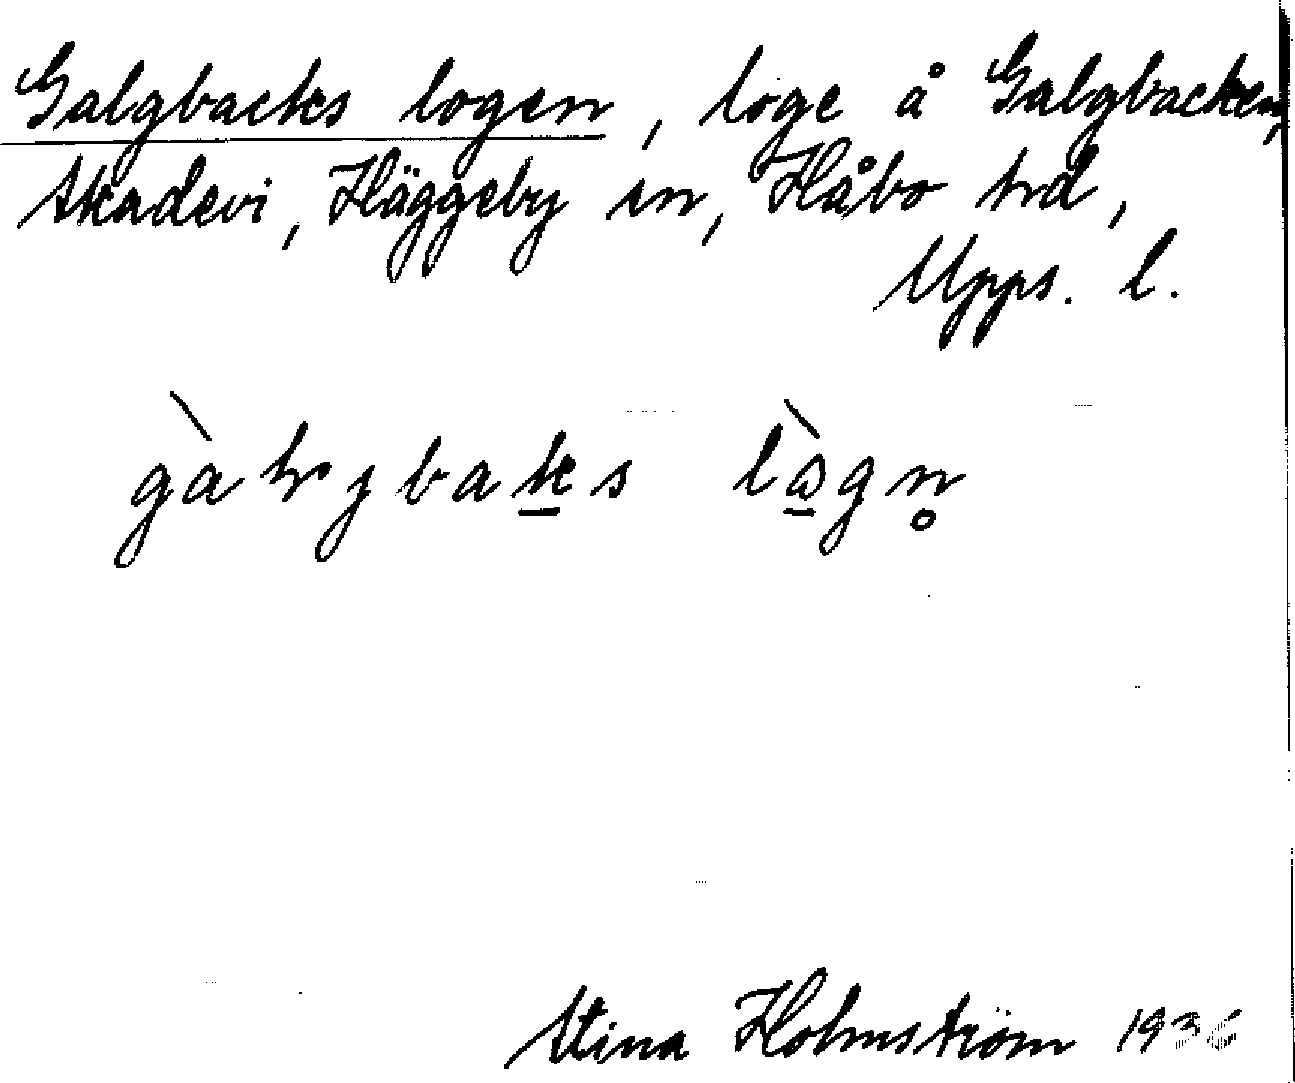 Galgbacks logen, loge å Galgbacken,
Skadevi, Häggeby sn, Håbo hrd,
Upps. l.
Stina Holmström 1936